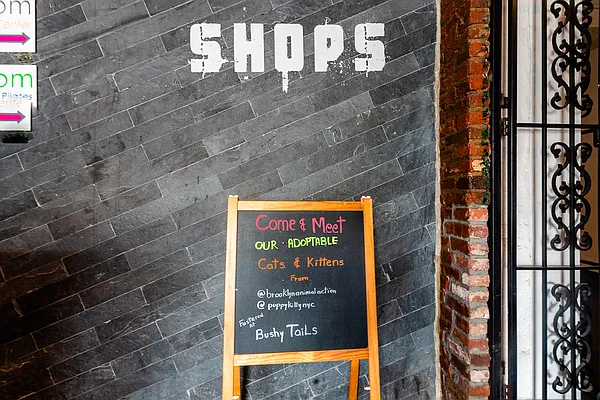 om
Center
SHOPS
om
Pilates
Center
Come & Meet
OUR · ADOPTABLE
Cats & Kittens
From
@brooklynanimalaction
@puppykittynyc
Fostered
at
Bushy TaiLs